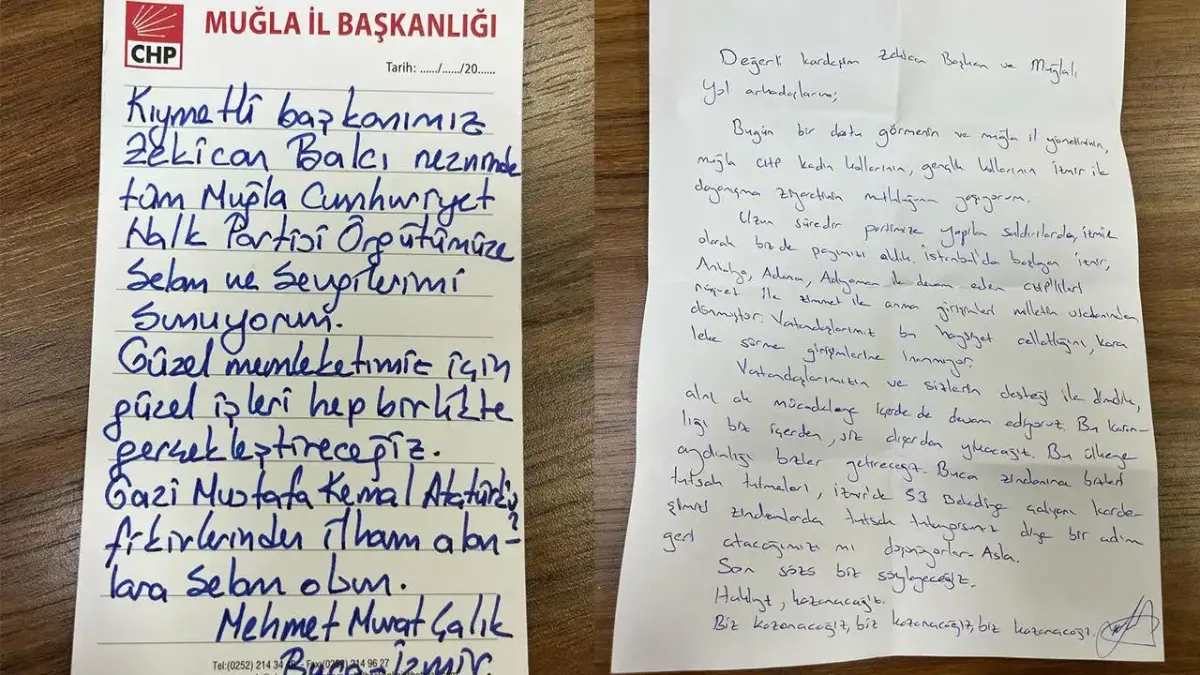 CHP
MUĞLA İL BAŞKANLIĞI
Tarih: ....../....../20......
Kıymetli başkanımız
Zekican Balcı neznınde
tüm Muğla Cumhuriyet
Halk Partisi Örgütümüze
Selam ve Sevgilerimi
Sunuyorum.
Güzel memleketimiz için
güzel işleri hep birlikte
gerçekleştireceğiz.
Gazi Mustafa Kemal Atatürk'ü
fikirlerinden ilham alan-
lara Selam olsun.
Mehmet Murat Çalık
Buca-İzmir
Tel:(0252) 214 34
Değerli kardeşim Zekican Başkan ve Muğlalı
Yol arkadaşlarım;
Bugün bir dostu görmenin ve muğla il yönetiminin,
muğla CHP kadın kollarının, gençlik kollarının İzmir ile
dayanışma ziyaretinin mutluluğunu yaşıyorum.
Uzun süredir partimize yapılan saldırılarda, izmir
olarak bizde payımızı aldık. İstanbul'da başlayan İzmir,
Antalya, Adana, Adıyaman ile devam eden CHP'lileri
rüşvet ile zimmet ile anma girişimleri milletin vicdanından
dönmüştür. Vatandaşlarımız bu haysiyet cellatlığını, kara
leke sürme girişimlerine inanmıyor.
Vatandaşlarımızın ve sizlerin desteği ile dimdik,
alnı ak mücadeleye içerde de devam ediyoruz. Bu karan-
lığı biz içerden, siz dışardan yıkacağız. Bu ülkeye
aydınlığı bizler getireceğiz. Buca zindanına bizleri
tutsak tutmaları, izmir'de 53 Belediye çalışanı karde-
şimizi zindanlarda tutsak tutuyorsunuz diye bir adım
geri atacağımızı mı düşünüyorlar- Asla.
Son sözü biz söyleyeceğiz.
Haklıyız, kazanacağız.
Biz kazanacağız, biz kazanacağız, biz kazanacağız.